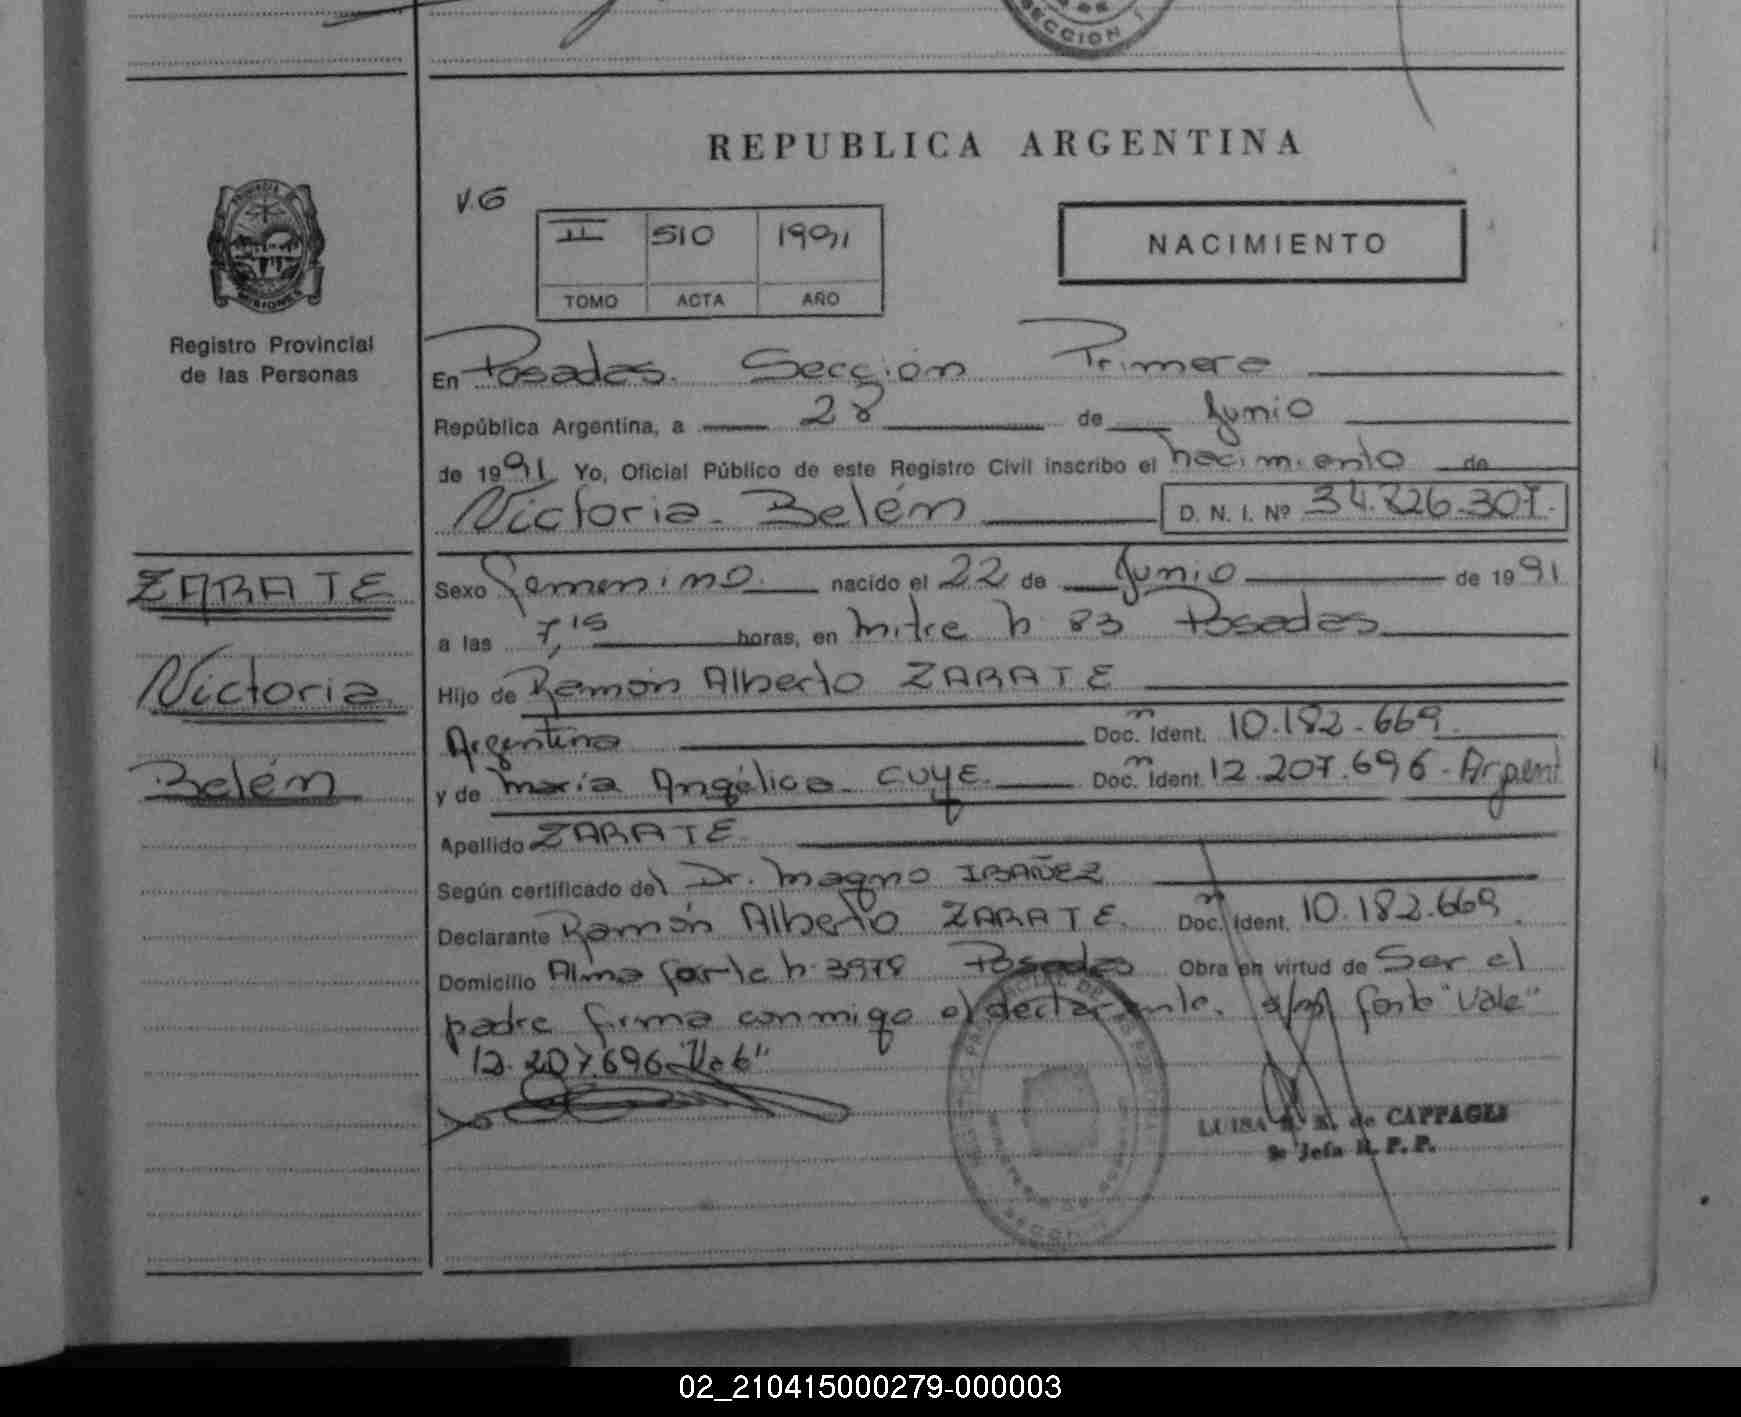 SECCION 1
REPUBLICA ARGENTINA
V.G
II 510 1991
TOMO ACTA AÑO
NACIMIENTO
MISIONES
Registro Provincial
de las Personas
En Posadas. Sección Primera
República Argentina, a 28 de Junio
de 1991 Yo, Oficial Público de este Registro Civil inscribo el nacimiento de
Victoria Belén D. N. I. Nº 34.826.307.
ZARATE
Victoria
Belén
Sexo Femenino nacido el 22 de Junio de 1991
a las 7,15 horas, en Mitre n 83 Posadas
Hijo de Ramón Alberto ZARATE
Argentina Doc. Ident. 10.182.669.
y de María Angélica CUYE. Doc. Ident. 12.207.696 - Argent
Apellido ZARATE
Según certificado del Dr. Magno IBAÑEZ
Declarante Ramón Alberto ZARATE. Doc. Ident. 10.182.669.
Domicilio Alma fuerte n 3978 Posadas Obra en virtud de Ser el
padre firma conmigo el declarante. "Vale"
12.207.696 "Vale"
LUISA de CAPPAGLI
Jefa R. P. P.
02_210415000279-000003